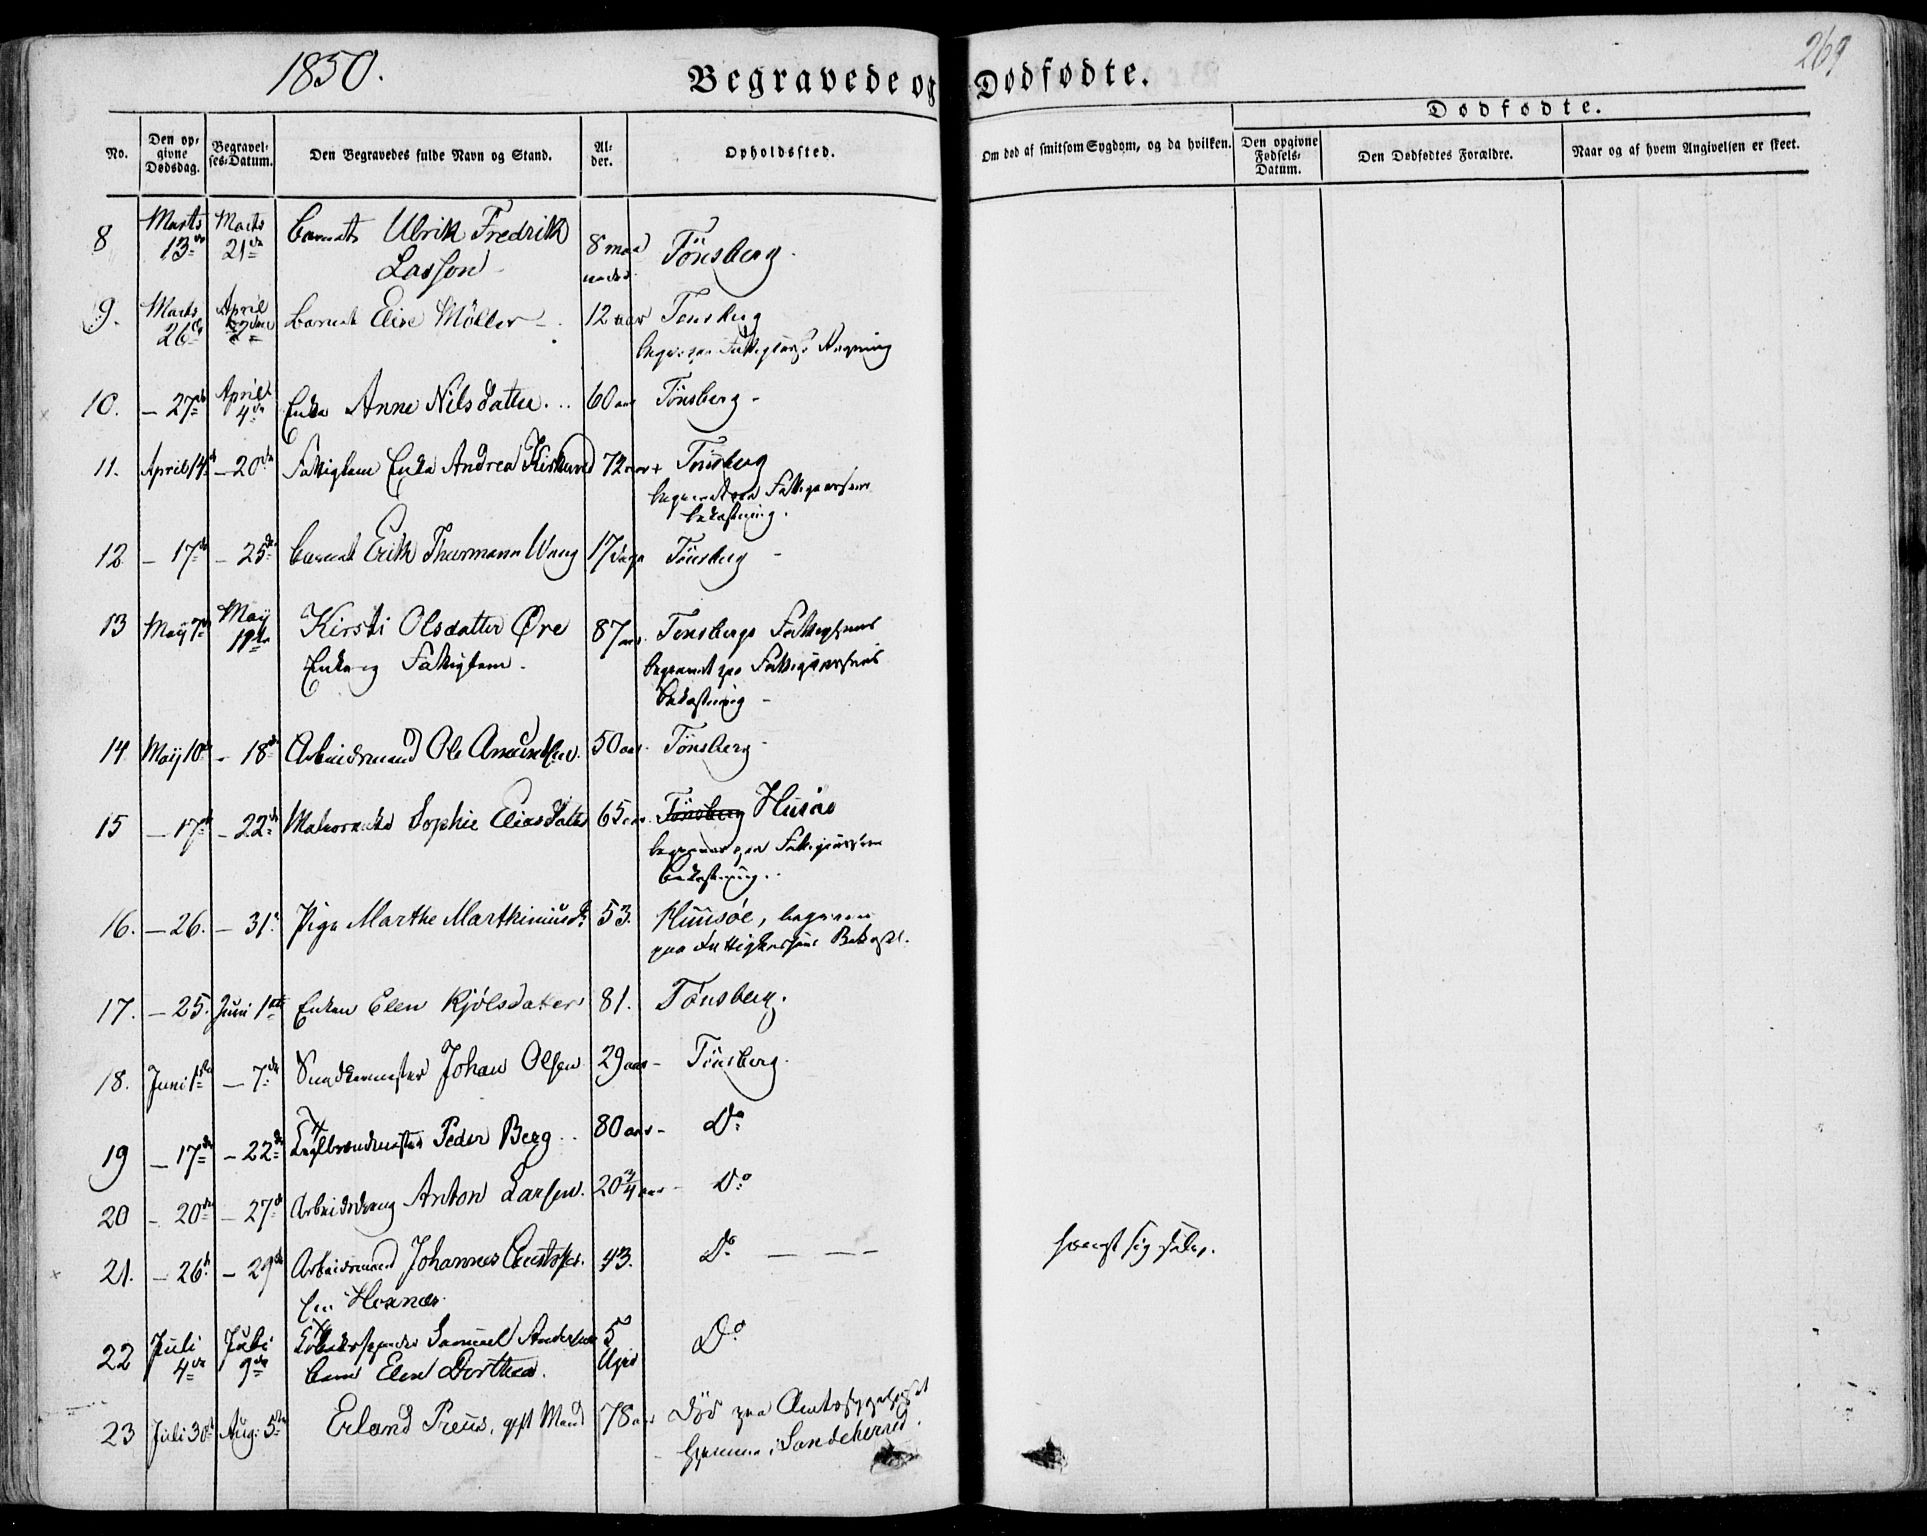 1850.
Begravede og Dødfødte.
269
Dødfødte.
No.
Den op-
givne
Dødsdag.
Begravel-
ses-Datum.
Den Begravedes fulde Navn og Stand.
Al-
der.
Opholdssted.
Om død af smitsom Sygdom, og da hvilken.
Den opgivne
Fødsels-
Datum.
Den Dødfødtes Forældre.
Naar og af hvem Angivelsen er skeet.
8 Marts 13de Marts 21de Barnet Ulrik Fredrik 8 maa Tönsberg.
Lasson neder
9. Marts 26de April 2den Barnet Elise Möller 12 aar Tönsberg
10. – 27de April 4de Enke Anne Nilsdatter. 60 aar Tönsberg
11. April 14de – 20de Fattiglem Enke Andrea 72 aar Tönsberg
begravet paa Fattigvæsenets
bekostning.
12 – 17de – 25de Barnet Erik Thurmann Wang 17 Dage Tönsberg
13 Maÿ 7de Maÿ Kirsti Olsdatter Øre 87 aar Tønsbergs
Enke og Fattiglem. begravet paa Fattigvæsenets
bekostning
14. Maÿ 10de – 18de Arbeidsmand Ole Amundsen. 50 aar Tönsberg
15 – 17de – 22de Sophie Eliasdatter 65 aar Tönsberg Husøe
paa
bekostning.
16. – 26. – 31. Pige Marthe Marthiniusd. 53. Huusøe, begraven
paa Fattigvæsens Bekostn.
17. – 25. Juni 1ste Enken Elen Kjölsdatter 81. Tønsberg.
18. Juni 1ste – 7de Johan Olsen 29 aar Tönsberg.
19 – 17de – 22de Peder Berg 80 aar Do
20 – 20de – 27de Arbeidsdreng Anton Larsen. 20¾ aar Do
21. – 26de – 29de Arbeidsmand Johannes 43. Do – – – hængt sig selv.
22 Juli 4de Juli 9de Samuel Andersen 5 Do
Barn Elen Dorthea. Uger
23 Juli 30te Aug: 5te Erland Preus, gift Mand 78 aar Død paa Amtssygehuset
hjemme i Sandeherred.